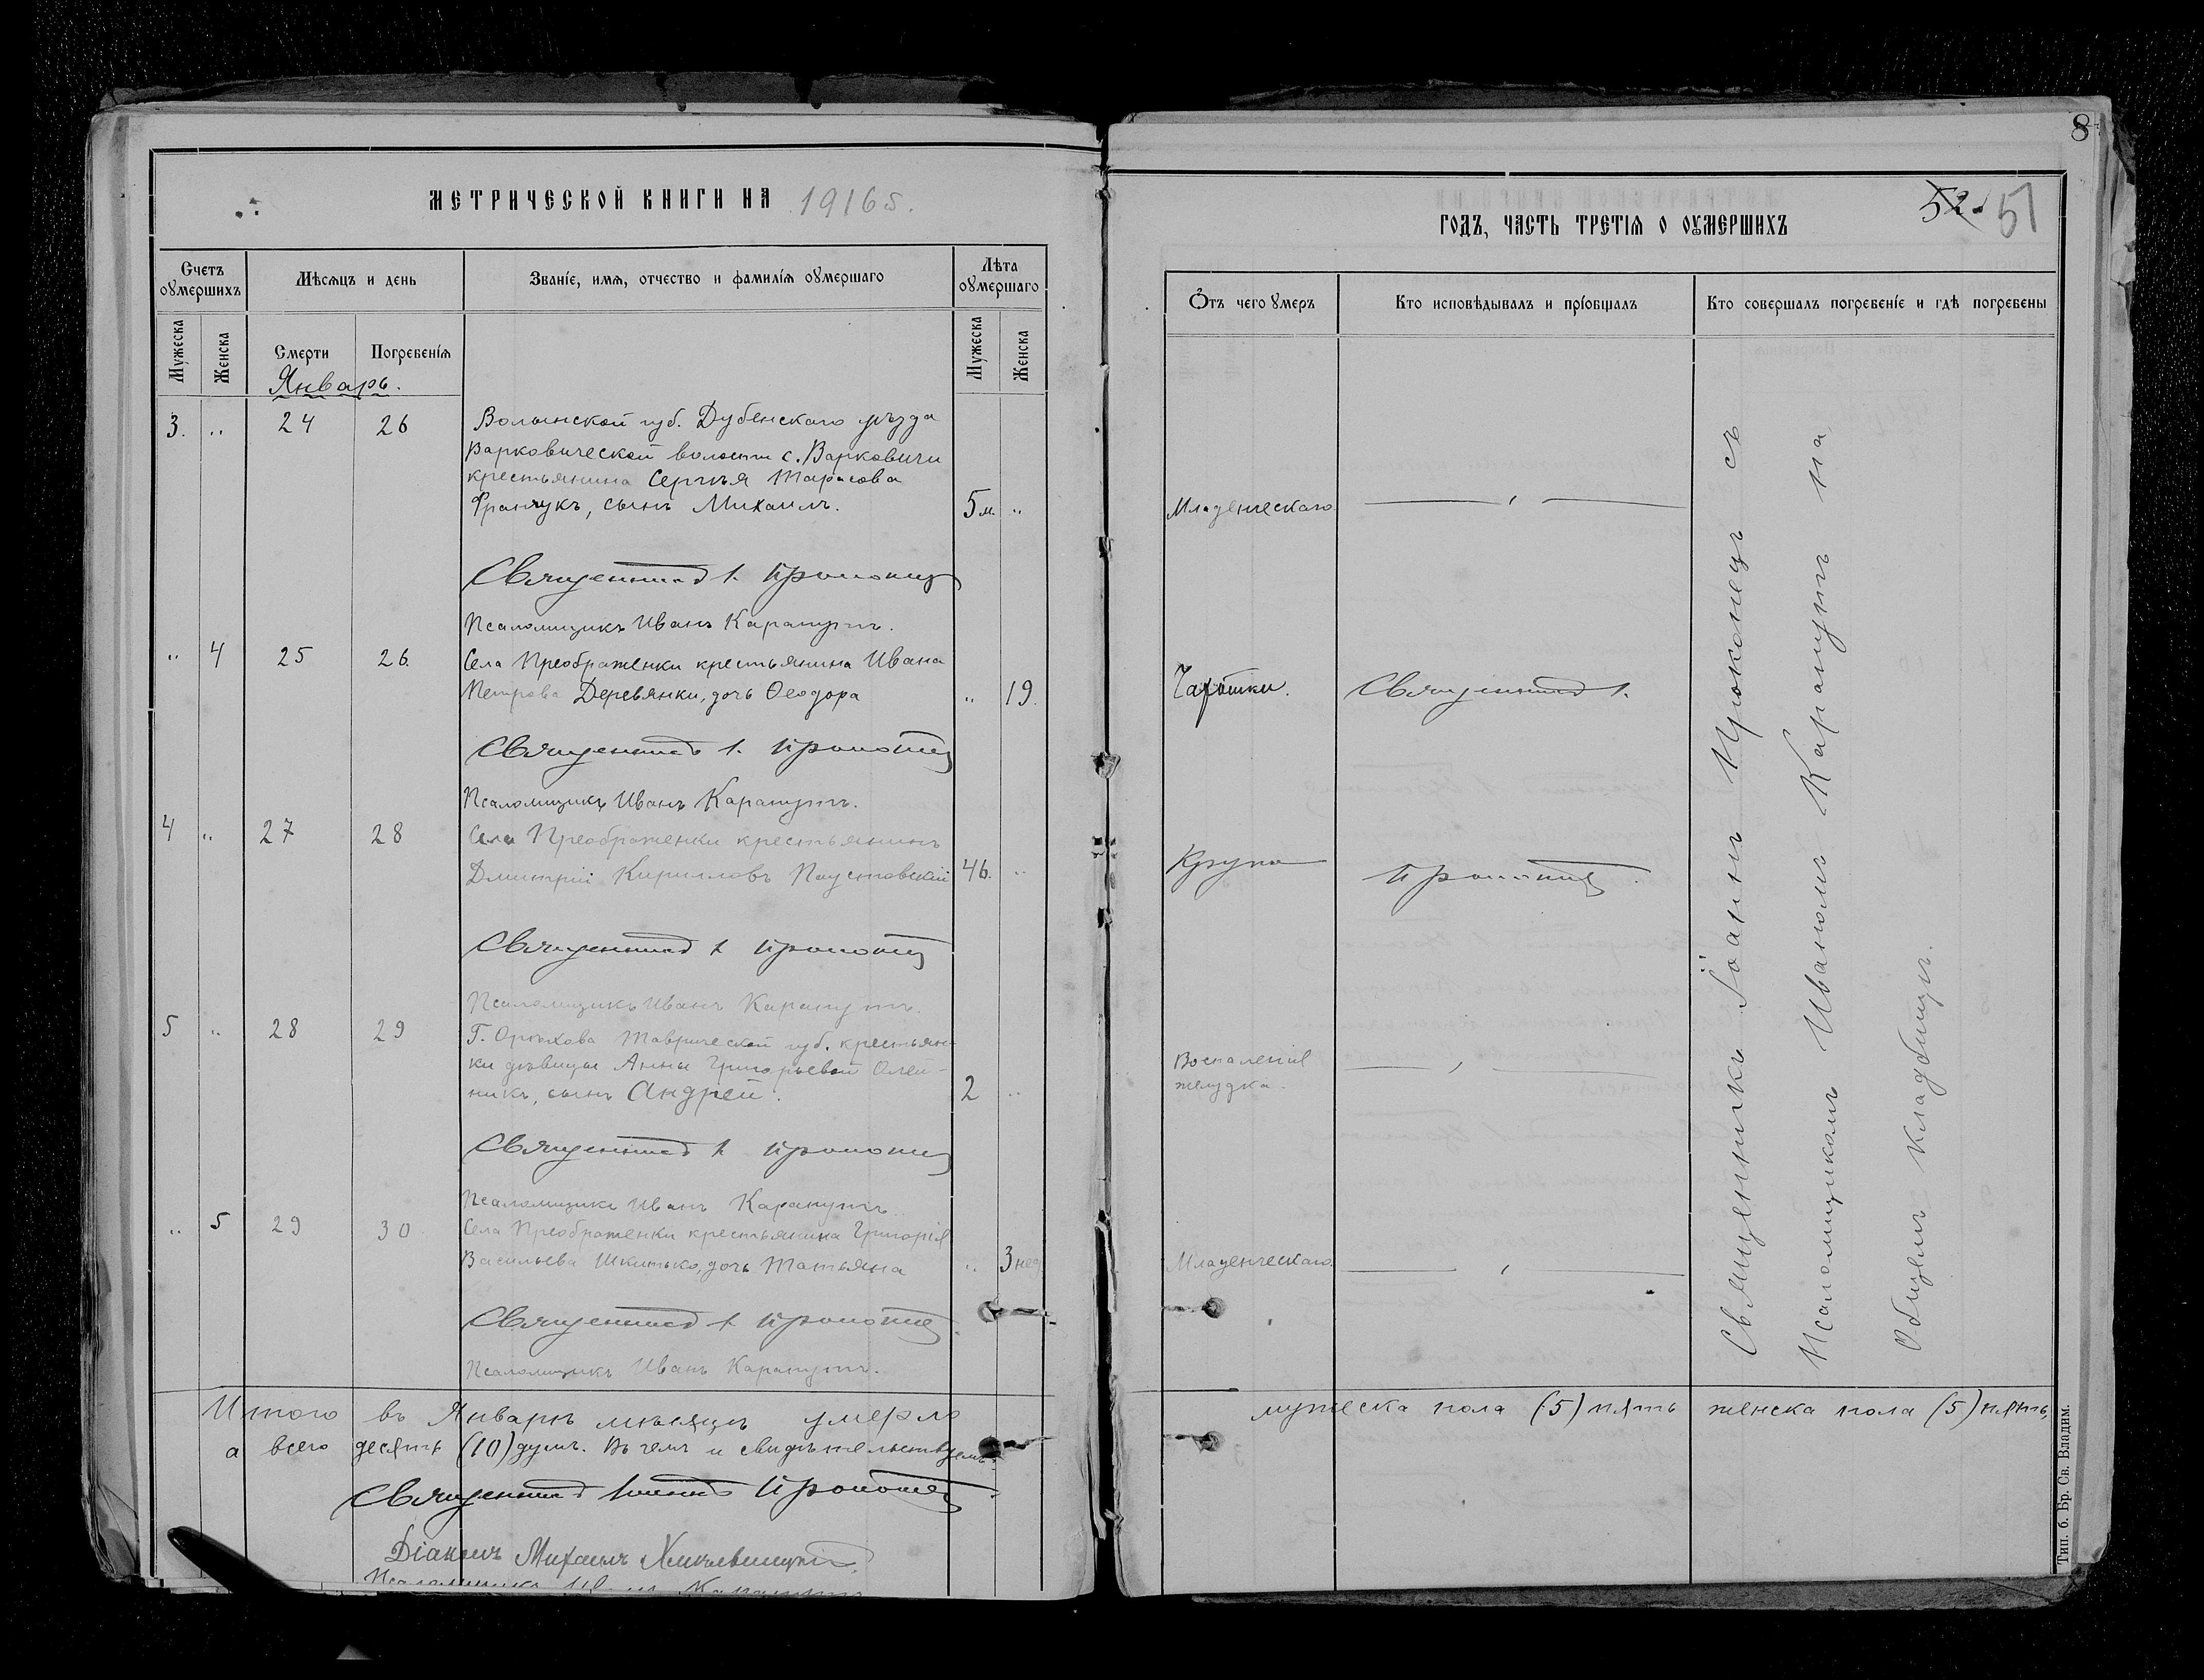 МЕТРИЧЕСКОЙ КНИГИ НА 1916
Счетъ оумершихъ
Мѣсяцъ и день
Званіе, имя, отчество и фамилія оумершаго
Лѣта оумершаго
Мужеска
Женска
Смерти
Погребенія
Мужеска
Женска
Январь.
3. „ 24 26 Волынской губ. Дубенскаго уѣзда
Варковической волости с. Варковичи
крестьянина Сергѣя Тарасова
Франчукъ, сынъ Михаилъ. 5 м. „
Священникъ І. Прокопецъ
Псаломщикъ Иванъ Карапутъ.
„ 4 25 26. Села Преображенки крестьянина Ивана
Петрова Деревянки, дочь Ѳеодора „ 19.
Священникъ І. Прокопецъ
Псаломщикъ Иванъ Карапутъ.
4 „ 27 28 Села Преображенки крестьянинъ
Дмитрій Кирилловъ Паустовскій 46. „
Священникъ І. Прокопецъ
Псаломщикъ Иванъ Карапутъ.
5 „ 28 29 Г. Орѣхова Таврической губ. крестьян-
ки дѣвицы Анны Григорьевой Олей-
никъ, сынъ Андрей. 2 „
Священникъ І. Прокопецъ
Псаломщикъ Иванъ Карапутъ
„ 5 29 30 Села Преображенки крестьянина Григорія
Васильева Шкитько, дочь Татьяна „ 3 нед
Священникъ І. Прокопецъ.
Псаломщикъ Иванъ Карапутъ.
Итого въ Январѣ мѣсяцѣ умерло
а всего десять (10) душъ. Въ чемъ и свидѣтельствуемъ:
Священникъ Іоаннъ Прокопецъ.
Діаконъ Михаилъ
Псаломщикъ Иванъ Карапутъ
8
52. 51
ГОДЪ, ЧАСТЬ ТРЕТІЯ О ОУМЕРШИХЪ
Отъ чего умеръ
Кто исповѣдывалъ и пріобщалъ
Кто совершалъ погребеніе и гдѣ погребены
Младенческаго.
Чахотки. Священникъ І.
Прокопецъ.
Воспаленіе
желудка.
Младенческаго.
Священникъ Іоаннъ Прокопецъ съ
Псаломщикомъ Иваномъ Карапутъ на
Общемъ кладбищѣ.
мужеска пола (5) пять женска пола (5) пять,
Тип. б. Бр. Св. Владим.